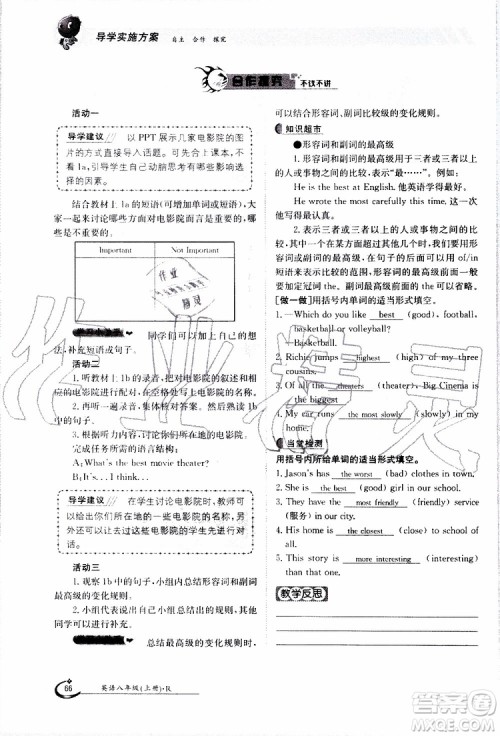 导学实施方案 自主 合作 探究
合作探究 不议不讲
活动一
导学建议 以 PPT 展示几家电影院的图
片的方式直接导入话题。可先不
看 1a,引导学生自己动脑思考影响选
择的因素。
结合教材上 1a 的短语(可增加单词或短语),
一起来讨论哪些方面对电影院而言是重要的,哪些
是不重要的。
Important Not Important
同学们可以加上自己的想
法,补充短语或句子。
活动二
1. 听教材上 1b 的录音,把对电影院的叙述和相
应的电影院名称匹配,在空格处写上电影院名称。
2. 再听录音,集体核对答案。
完成句子并观察所运用的语言结构:
A: What's the best movie theater?
B: It's .
导学建议 在学生讨论电影院时,教师可
以给出你们所在地的一些电影院的名称,
另外还可以给出更多的问题让学生先准备。
活动三
1. 观察 1b 中的句子,小组内总结形容词和副词
最高级的变化规则。
2. 小组代表展示小组总结出的变化规则,其他
同学可以进行补充。
总结最高级的变化规则时,
66 英语八年级(上册)·R
可以结合形容词、副词比较级的变化规则。
知识超市
●形容词和副词的最高级
1. 形容词和副词的最高级用于三者或三者以
上的人或事物的比较,表示"最……"。例如:
He is the best at English. 他英语学得最好。
He wrote the most carefully this time. 这次
他写得最认真。
2. 表示三者或三者以上的人或事物的比较,其
中一个在某方面超过其他几个时,用最高级。使用
形容词或副词的最高级,在句子的后面可用 of/in
短语来说明比较的范围。形容词的最高级在句中一
般要加定冠词 the。副词最高级中的 the 可以省略。
【做一做】用括号内单词的适当形式填空。
1. —Which do you like best (good), football,
basketball or volleyball?
—Basketball.
2. Richie jumps highest (high) of my three
cousins.
3. Of all the theaters (theater), Big Cinema is
the biggest.
4. My car runs the most slowly (slowly) in my
home.
当堂检测
用括号内所给单词的适当形式填空。
1. Jason's has the worst (bad) clothes in town.
2. This store is the best (good) in our town.
3. They have the most friendly (friendly)
service (服务) in our city.
4. His home is the closest (close) to school of
all.
5. This story is more interesting (interesting)
than that one.
教学反思